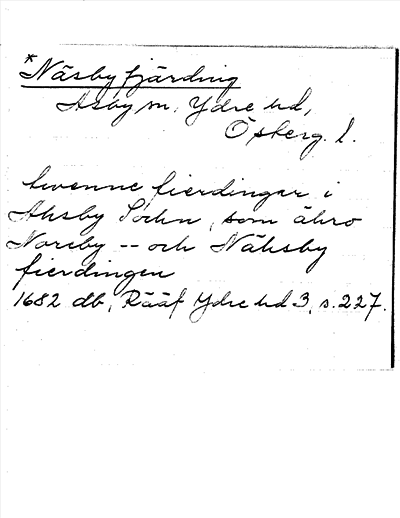 *Näsby fjärding
Asby sn, Ydre hd,
Österg. l.
tvenne fierdingar i
Ahsby Sochn, som ähro
Noreby -- och Nähsby
fierdingen
1682 db, Rääf Ydre hd 3, s. 227.